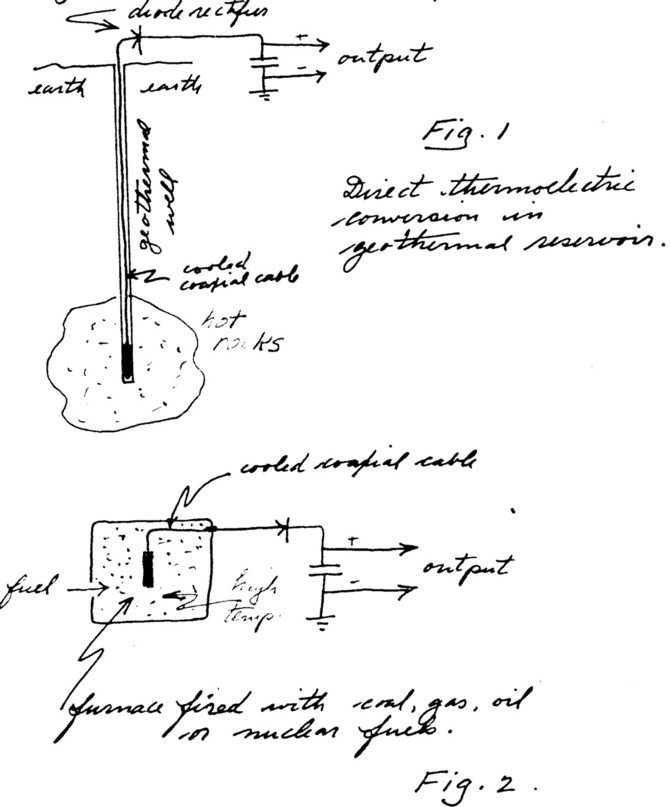 diode rectifier
+
-
output
earth
earth
Fig. 1
Direct thermoelectric
conversion in
geothermal reservoir.
geothermal
well
cooled
coaxial cable
hot
rocks
cooled coaxial cable
+
-
output
fuel
high
temp.
furnace fired with coal, gas, oil
or nuclear fuels.
Fig. 2.